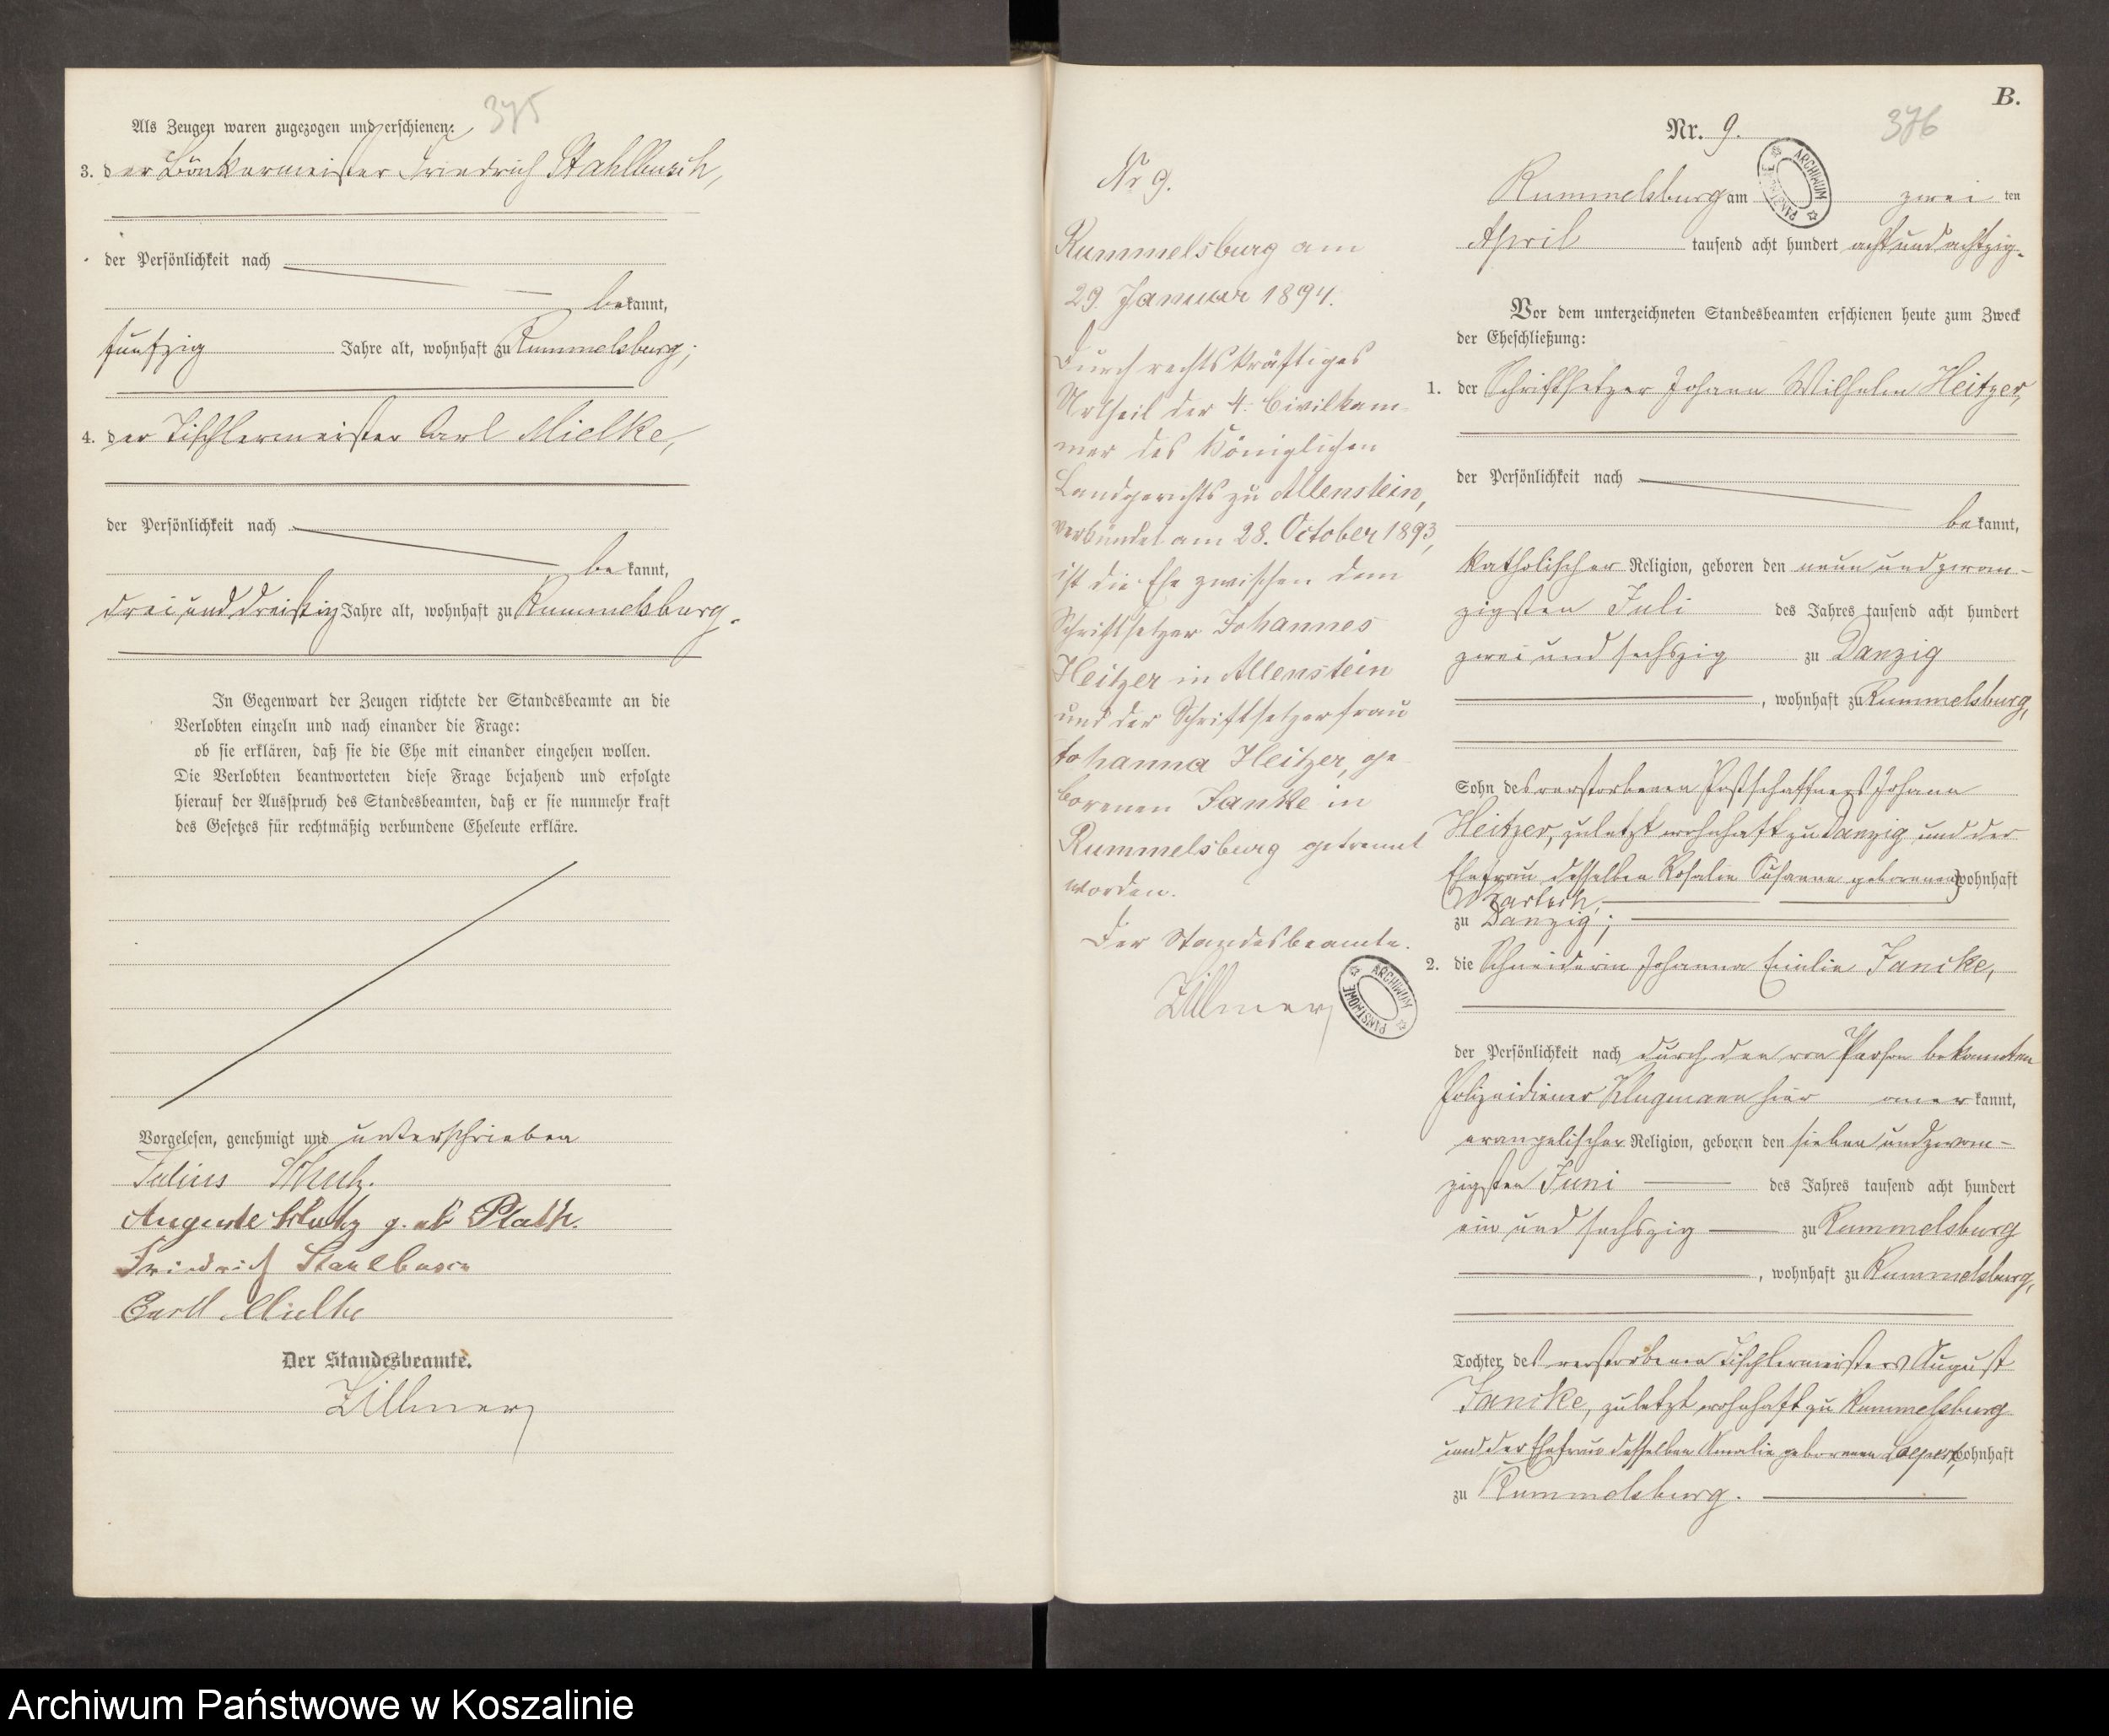 375
Als Zeugen waren zugezogen und erschienen:
3. der Böttchermeister Friedrich Stahlbusch,
der Persönlichkeit nach
bekannt,
fünfzig Jahre alt, wohnhaft zu Rummelsburg;
4. der Tischlermeister Carl Mielke,
der Persönlichkeit nach
bekannt,
drei und dreißig Jahre alt, wohnhaft zu Rummelsburg.
In Gegenwart der Zeugen richtete der Standesbeamte an die
Verlobten einzeln und nach einander die Frage:
ob sie erklären, daß sie die Ehe mit einander eingehen wollen.
Die Verlobten beantworteten diese Frage bejahend und erfolgte
hierauf der Ausspruch des Standesbeamten, daß er sie nunmehr kraft
des Gesetzes für rechtmäßig verbundene Eheleute erkläre.
Vorgelesen, genehmigt und unterschrieben
Julius
Auguste g. eb Plath.
Friedrich Stahlbusch
Carl Mielke
Der Standesbeamte.
Zillmer
Nr 9.
Rummelsburg am
29. Januar 1894.
Durch rechtskräftiges
Urtheil der 4. Civilkam-
mer des Königlichen
Landgerichts zu Allenstein,
verkündet am 28. October 1893,
ist die Ehe zwischen dem
Schriftsetzer Johannes
Heitzer in Allenstein
und der Schriftsetzerfrau
Johanna Heitzer, ge-
borenen Janke in
Rummelsburg getrennt
worden.
Der Standesbeamte.
Zillmer
ARCHIWUM PAŃSTWOWE
B.
Nr. 9.
376
ARCHIWUM PAŃSTWOWE
Rummelsburg am zwei ten
April tausend acht hundert acht und achtzig.
Vor dem unterzeichneten Standesbeamten erschienen heute zum Zweck
der Eheschließung:
1. der Schriftsetzer Johann Wilhelm Heitzer,
der Persönlichkeit nach
bekannt,
katholischer Religion, geboren den neun und zwan-
zigsten Juli des Jahres tausend acht hundert
zwei und sechszig zu Danzig
, wohnhaft zu Rummelsburg,
Sohn des verstorbenen Postschaffners Johann
Heitzer, zuletzt wohnhaft zu Danzig und der
Ehefrau desselben Rosalie Susanna geborenen wohnhaft
zu Danzig;
2. die Schneiderin Johanna Emilie Jancke,
der Persönlichkeit nach durch den von Person bekannten
Polizeidiener Klugmann hier anerkannt,
evangelischer Religion, geboren den sieben und zwan-
zigsten Juni des Jahres tausend acht hundert
ein und sechszig zu Rummelsburg
, wohnhaft zu Rummelsburg,
Tochter des verstorbenen Tischlermeisters August
Jancke, zuletzt wohnhaft zu Rummelsburg
und der Ehefrau desselben Amalie geborenen wohnhaft
zu Rummelsburg.
Archiwum Państwowe w Koszalinie